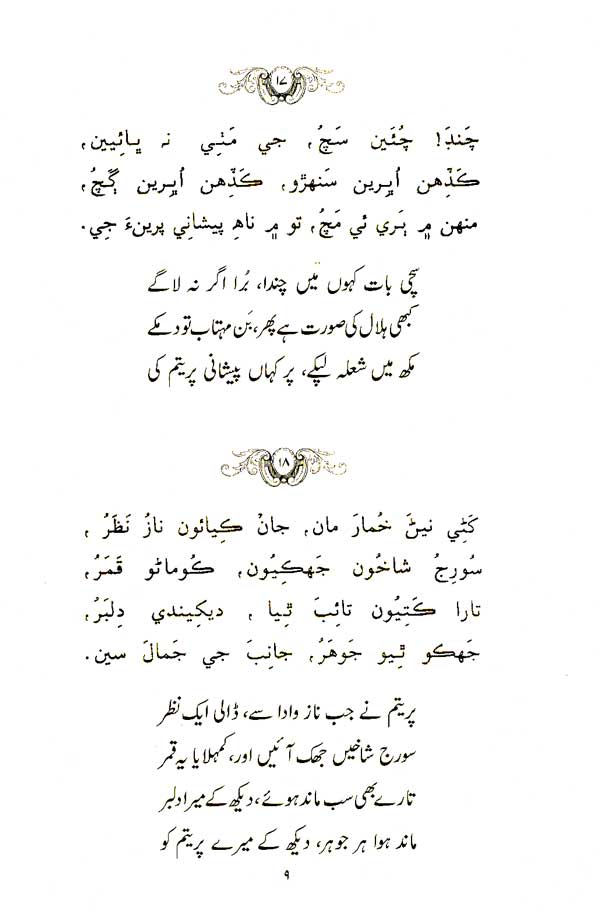 ١٧
چَنڊَ! چُئَين سَچُ، جي مَٺِي نہ ڀائِيين،
ڪَڏِهن اُڀِرين سَنهڙو، ڪَڏِهن اُڀِرين ڳَچُ،
منهن ۾ ٻَري ئي مَچُ، تو ۾ ناهِ پيشانِي پرينءَ جِي.
سچی بات کہوں میں چندا، بُرا اگر نہ لاگے
کبھی ہلال کی صورت ہے پھر، بَن مہتاب تو دمکے
مکھ میں شعلہ لپکے، پر کہاں پیشانی پریتم کی
١٨
کَڻِي نيڻَ خُمارَ مان، جانۡ ڪِيائون نازُ نَظَرُ،
سُورِجُ شاخُون جَهڪِيُون، ڪُوماڻو قَمَرُ،
تارا ڪَتِيُون تائِبَ ٿِيا، ديکِيندي دِلبَرُ،
جَهڪو ٿِيو جَوهَرُ، جانِبَ جي جَمالَ سين.
پریتم نے جب ناز و ادا سے، ڈالی ایک نظر
سورج شاخیں جھک آئیں اور، کمہلایا یہ قمر
تارے بھی سب ماند ہوئے، دیکھ کے میرا دلبر
ماند ہوا ہر جوہر، دیکھ کے میرے پریتم کو
۹